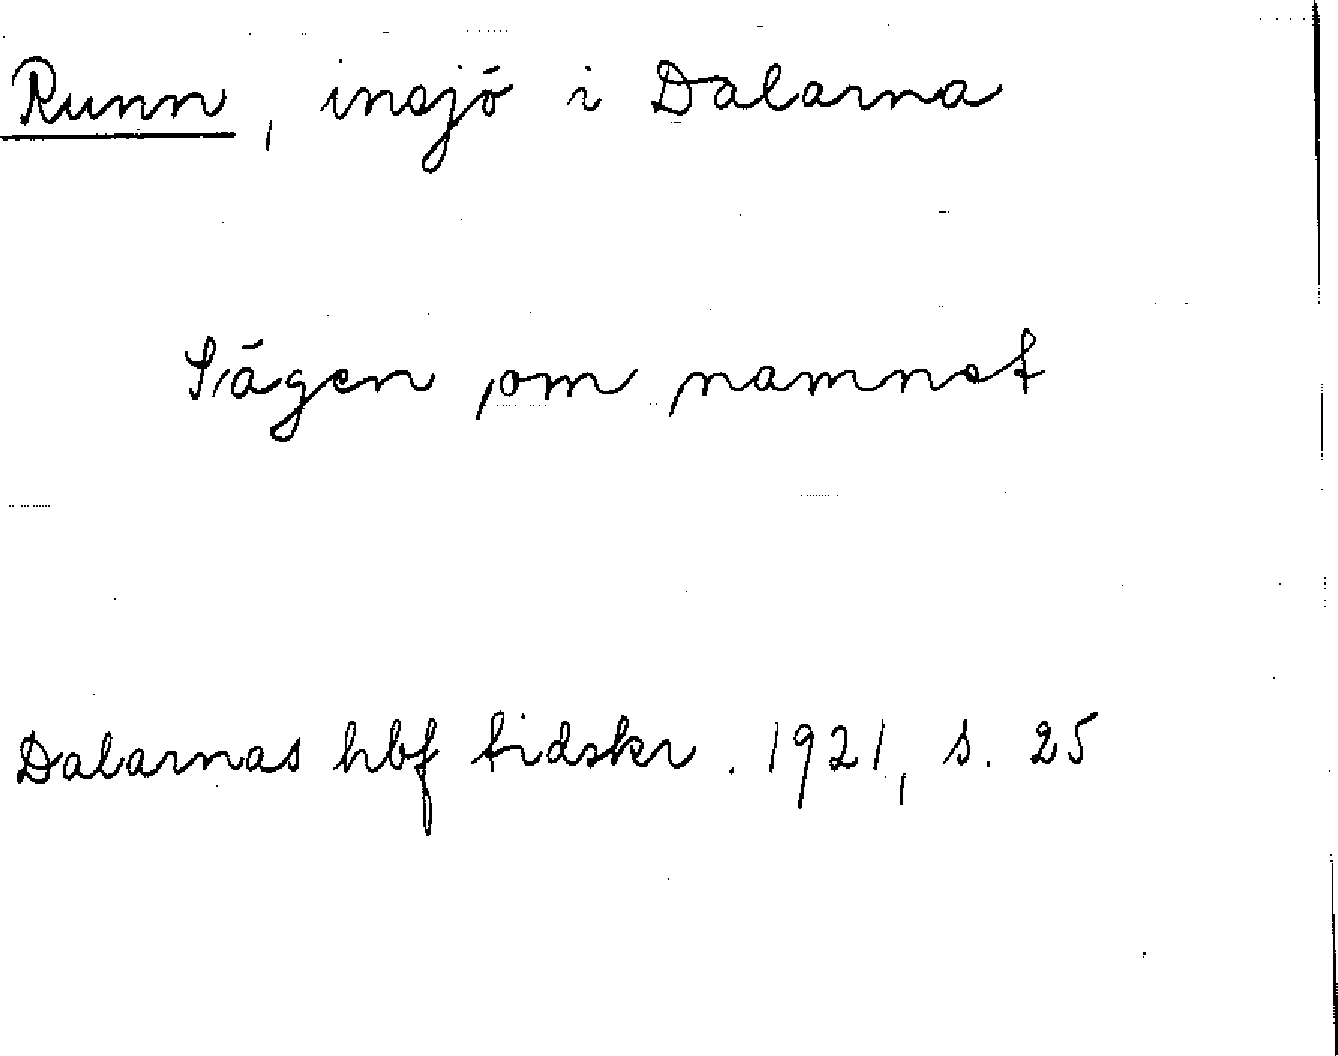 Runn, insjö i Dalarna
Sägen om namnet
Dalarnas hbf tidskr. 1921, s. 25